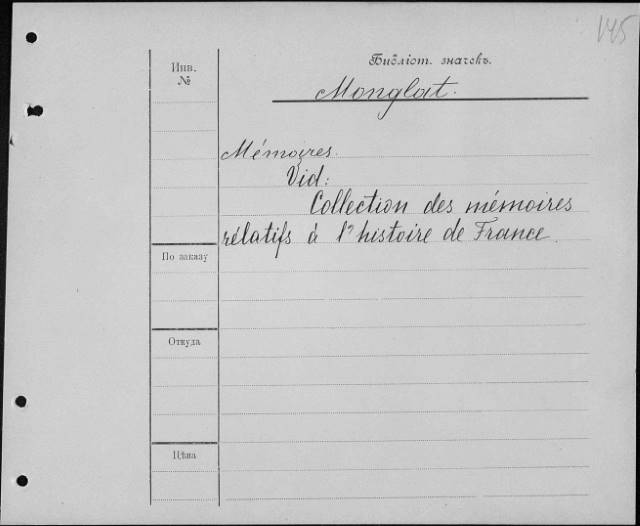 145
Инв.
№
Библіот. значекъ.
Monglat.
Mémoires.
Vid:
Collection des mémoires
rélatifs à l'histoire de France.
По заказу
Откуда
Цѣна